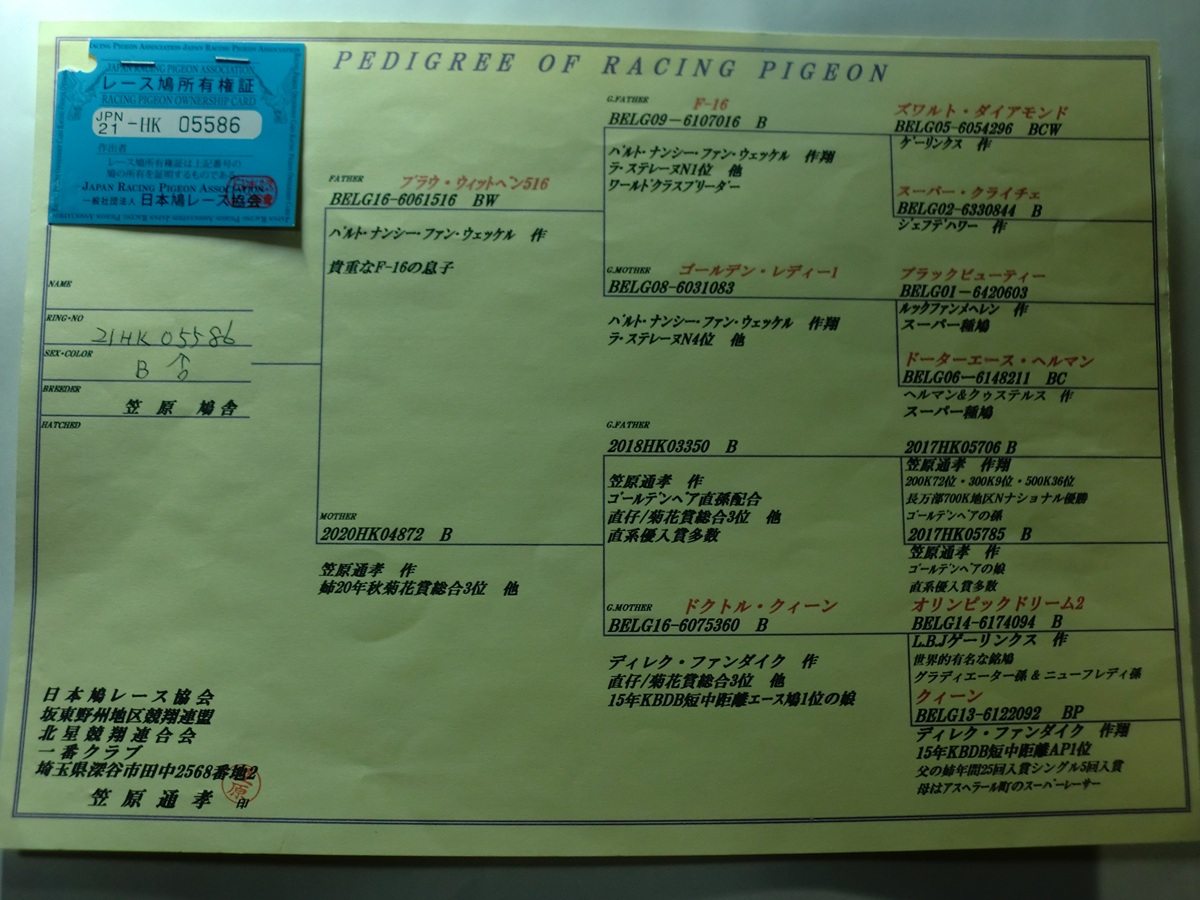 PEDIGREE OF RACING PIGEON
RACING PIGEON ASSOCIATION JAPAN RACING PIGEON ASSOCIATION
JAPAN RACING PIGEON ASSOCIATION
レース鳩所有権証
RACING PIGEON OWNERSHIP CARD
JPN
21 -HK 05586
作出者
レース鳩所有権証は上記番号の
鳩の所有を証明するものである
JAPAN RACING PIGEON ASSOCIATION
一般社団法人 日本鳩レース協会
NAME
RING・NO
21HK05586
SEX・COLOR
B ♂
BREEDER
笠原 鳩舎
HATCHED
FATHER
ブラウ・ウィットペン516
BELG16-6061516 BW
バルト・ナンシー・ファン・ウェッケル 作
貴重なF-16の息子
MOTHER
2020HK04872 B
笠原通孝 作
姉20年秋菊花賞総合3位 他
G.FATHER
F-16
BELG09-6107016 B
バルト・ナンシー・ファン・ウェッケル 作翔
ラ・ステレーヌN1位 他
ワールドクラスブリーダー
G.MOTHER
ゴールデン・レディー1
BELG08-6031083
バルト・ナンシー・ファン・ウェッケル 作翔
ラ・ステレーヌN4位 他
G.FATHER
2018HK03350 B
笠原通孝 作
ゴールデンペア直孫配合
直仔/菊花賞総合3位 他
直系優入賞多数
G.MOTHER
ドクトル・クィーン
BELG16-6075360 B
ディレク・ファンダイク 作
直仔/菊花賞総合3位 他
15年KBDB短中距離エース鳩1位の娘
ズワルト・ダイアモンド
BELG05-6054296 BCW
ゲーリンクス 作
スーパー・クライチェ
BELG02-6330844 B
ジェフデハワー 作
ブラックビューティー
BELG01-6420603
ルックファンメヘレン 作
スーパー種鳩
ドーターエース・ヘルマン
BELG06-6148211 BC
ヘルマン&クゥステルス 作
スーパー種鳩
2017HK05706 B
笠原通孝 作翔
200K72位・300K9位・500K36位
長万部700K地区Nナショナル優勝
ゴールデンペアの孫
2017HK05785 B
笠原通孝 作
ゴールデンペアの娘
直系優入賞多数
オリンピックドリーム2
BELG14-6174094 B
L.B.Jゲーリンクス 作
世界的有名な銘鳩
グラディエーター孫 & ニューフレディ孫
クィーン
BELG13-6122092 BP
ディレク・ファンダイク 作翔
15年KBDB短中距離AP1位
父の姉年間25回入賞シングル5回入賞
母はアスペラール町のスーパーレーサー
日本鳩レース協会
坂東野州地区競翔連盟
北星競翔連合会
一番クラブ
埼玉県深谷市田中2568番地2
笠原通孝 印